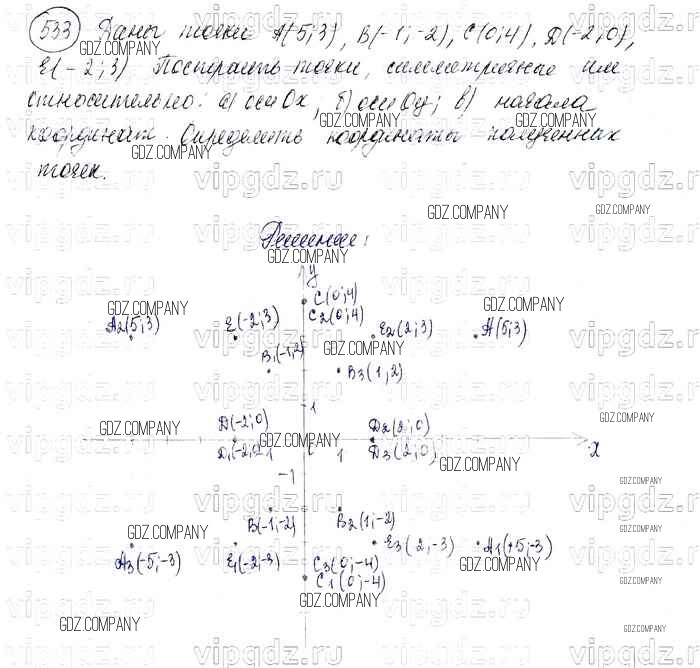 533 Даны точки A(5;3), B(-1;-2), C(0;4), D(-2;0),
E(-2;3) Построить точки, симметричные им
относительно: а) оси Ox, б) оси Oy; в) начала
координат. Определить координаты полученных
точек.
Решение:
y
C(0;4)
C2(0;4)
A2(5;3)
E(-2;3)
E2(2;3)
A(5;3)
B1(-1;2)
B3(1,2)
1
D(-2;0)
D2(2;0)
D1(-2;0)
-1
1
D3(2;0)
x
-1
B(-1;-2)
B2(1;-2)
A3(-5;-3)
E1(-2;-3)
E3(2,-3)
A1(+5;-3)
C3(0;-4)
C1(0;-4)
GDZ.COMPANY
vipgdz.ru